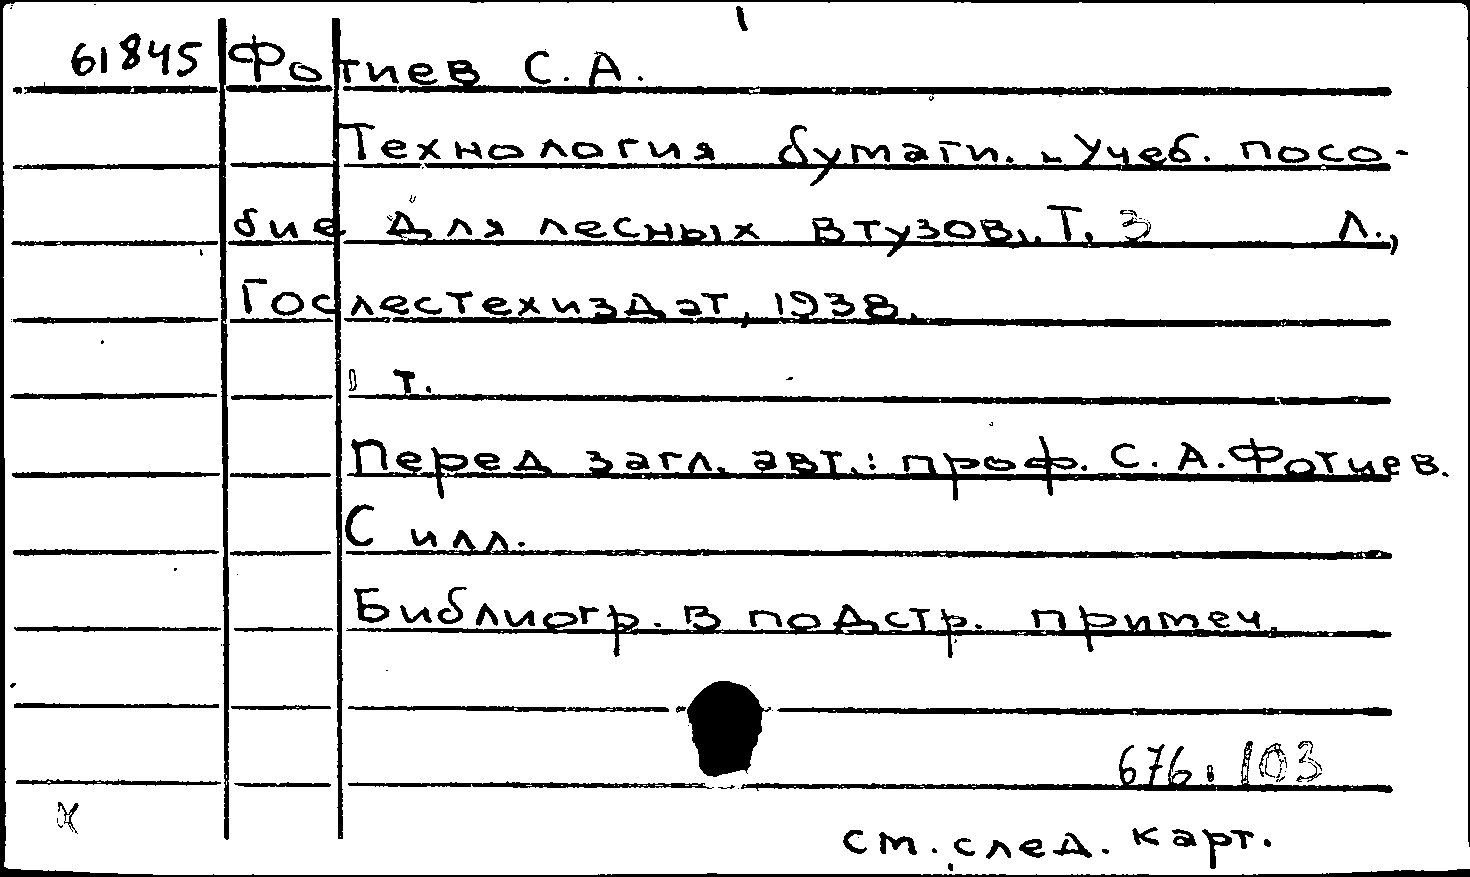 61845 Фотиев С. А.
Технология бумаги. - Учеб. посо-
бие для лесных втузов. Т. 3 Л.,
Гослестехиздат, 1938.
т.
Перед загл. авт.: проф. С. А. Фотиев.
С илл.
Библиогр. в подстр. примеч.
676. 103
см. след. карт.